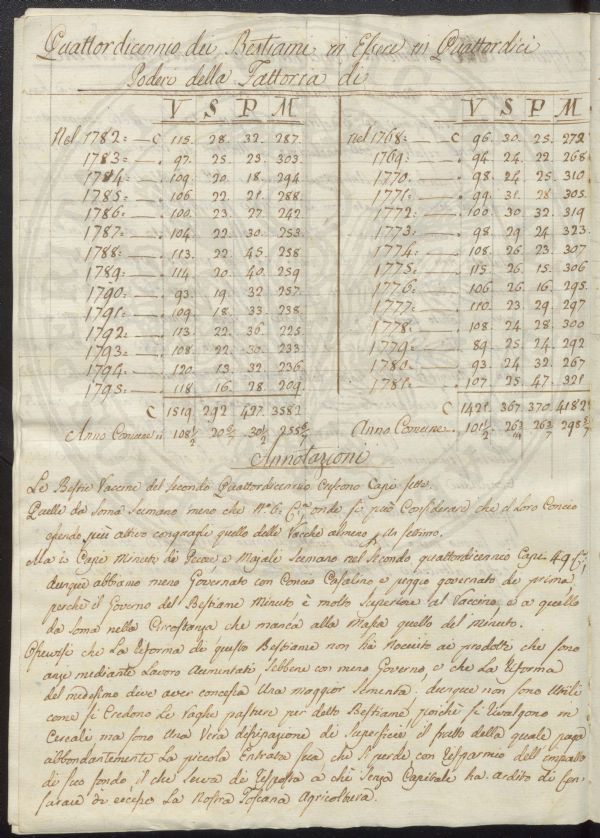 Quattordicennio dei Bestiami in Essere in Quattordici
Poderi della Fattoria di
V S P M V S P M
Nel 1782 = — C 115. 28. 32. 287. Nel 1768 = — C 96. 30. 25. 272
1783 = — . 97. 25. 23. 303. 1769 : — . 94. 24. 22. 268
1784 = — . 109. 20. 18. 294. 1770. — . 98. 24. 25. 310
1785 = — . 106. 22. 21. 288. 1771 = — . 99. 31. 28. 305
1786 = — . 100. 23. 27. 242. 1772 : — . 100. 30. 32. 319
1787 = — . 104. 22. 30. 253. 1773. — . 98. 29. 24. 323
1788 = — . 113. 22. 45. 258 1774. — . 108. 26. 23. 307
1789 = — . 114. 20. 40. 259 1775 = — . 115. 26. 15. 306
1790 = — . 93. 19. 32. 257. 1776. — . 106. 26. 16. 295.
1791 = — . 109. 18. 33. 238. 1777 = — . 110. 23. 29. 297
1792 = — . 113. 22. 36. 225. 1778. — . 108. 24. 28. 300
1793 = — . 108. 22. 30. 233. 1779 = — . 89. 25. 24. 292
1794. — . 120. 13. 32. 236. 1780. — . 93. 24. 32. 267
1795 = — . 118. 16. 28. 209. 1781 = — . 107. 25. 47. 321
C 1519. 292. 427. 3582 C 1421. 367. 370. 4182
Anno Comune 108 1/2 30 1/2 255 6/7 Anno Comune . 101 1/2 26 3/7 298 5/7
Annotazioni
Le Bestie Vaccine del Secondo Quattordicennio Crescono Capi Sette.
Quelle da Soma Scemano meno che N.º 6: onde si può Considerare che il Loro Concio
essendo più attivo conguagli quello delle Vacche almeno un Settimo.
Ma i Capi Minuti di Pecore e Majali Scemano nel Secondo quattordicennio Capi 49
dunque abbiamo meno Governato con Concio Casalino e peggio governato di prima
perchè il Governo del Bestiame Minuto è molto Superiore al Vaccino, e a quello
da Soma nella Circostanza che manca alla Massa quello del minuto.
che La riforma di questo Bestiame non hà Nociuto ai prodotti che sono
anzi mediante Lavoro Aumentati, Sebbene con meno Governo, e che La riforma
del medesimo deve aver concessa Una maggior Sementa: dunque non sono Utili
come si Credono Le Vaghe pasture per detto Bestiame, poichè si rivolgono in
Cereali ma sono Una Vera dissipazione di Superficie il frutto della quale paga
abbondantemente La piccola Entrata secca che Si perde con risparmio dell'impasto
di suo fondo, il che Serva di risposta a chi Senza Capitale ha ardito di Cen-
surare di eccesso La Nostra Toscana Agricoltura.